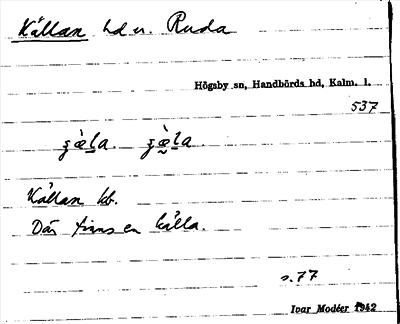 Källan hd u. Ruda
Högsby sn, Handbörds hd, Kalm. l.
537
Källan hb.
Där finns en källa.
s.77
Ivar Modéer 1942